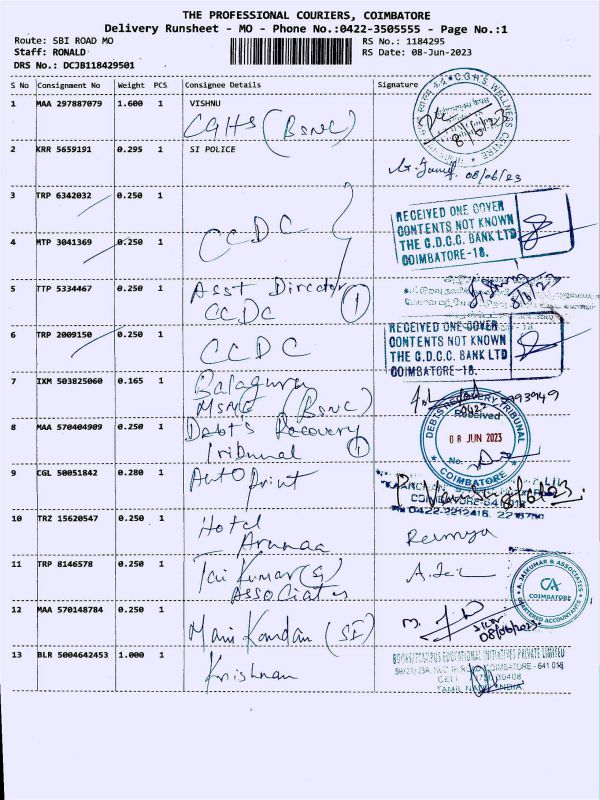 THE PROFESSIONAL COURIERS, COIMBATORE
Delivery Runsheet - MO - Phone No.:0422-3505555 - Page No.:1
Route: SBI ROAD MO
RS No.: 1184295
Staff: RONALD
RS Date: 08-Jun-2023
DRS No.: DCJB118429501
S No Consignment No Weight PCS Consignee Details Signature
1 MAA 297887079 1.600 1 VISHNU
CGHS (BSNL)
C.G.H.S WELLNESS CENTRE
8/6/23
2 KRR 5659191 0.295 1 SI POLICE
08/06/23
3 TRP 6342032 0.250 1
4 MTP 3041369 0.250 1
CCDC
RECEIVED ONE COVER
CONTENTS NOT KNOWN
THE C.D.C.C. BANK LTD
COIMBATORE-18.
5 TTP 5334467 0.250 1 Asst Director
CCDC 1
8/6/23
6 TRP 2009150 0.250 1
CCDC
RECEIVED ONE COVER
CONTENTS NOT KNOWN
THE C.D.C.C. BANK LTD
COIMBATORE-18.
7 IXM 503825060 0.165 1 Balaguru
(BSNL)
8 MAA 570404909 0.250 1 Debt's Recovery
Tribunal 1
DEBTS RECOVERY TRIBUNAL
Received
08 JUN 2023
No.
COIMBATORE
9 CGL 50051842 0.280 1 Auto print
0422-2212416.
10 TRZ 15620547 0.250 1 Hotel
Remya
11 TRP 8146578 0.250 1 Jai Kumar (S)
Associates
A. JAIKUMAR & ASSOCIATES
CA
COIMBATORE
CHARTERED ACCOUNTANTS
12 MAA 570148784 0.250 1
Mani Kandan (SI)
08/06/2023
13 BLR 5004642453 1.000 1
Krishnan
EDUCATIONAL INITIATIVES PRIVATE LIMITED
COIMBATORE - 641 018
TAMIL NADU INDIA